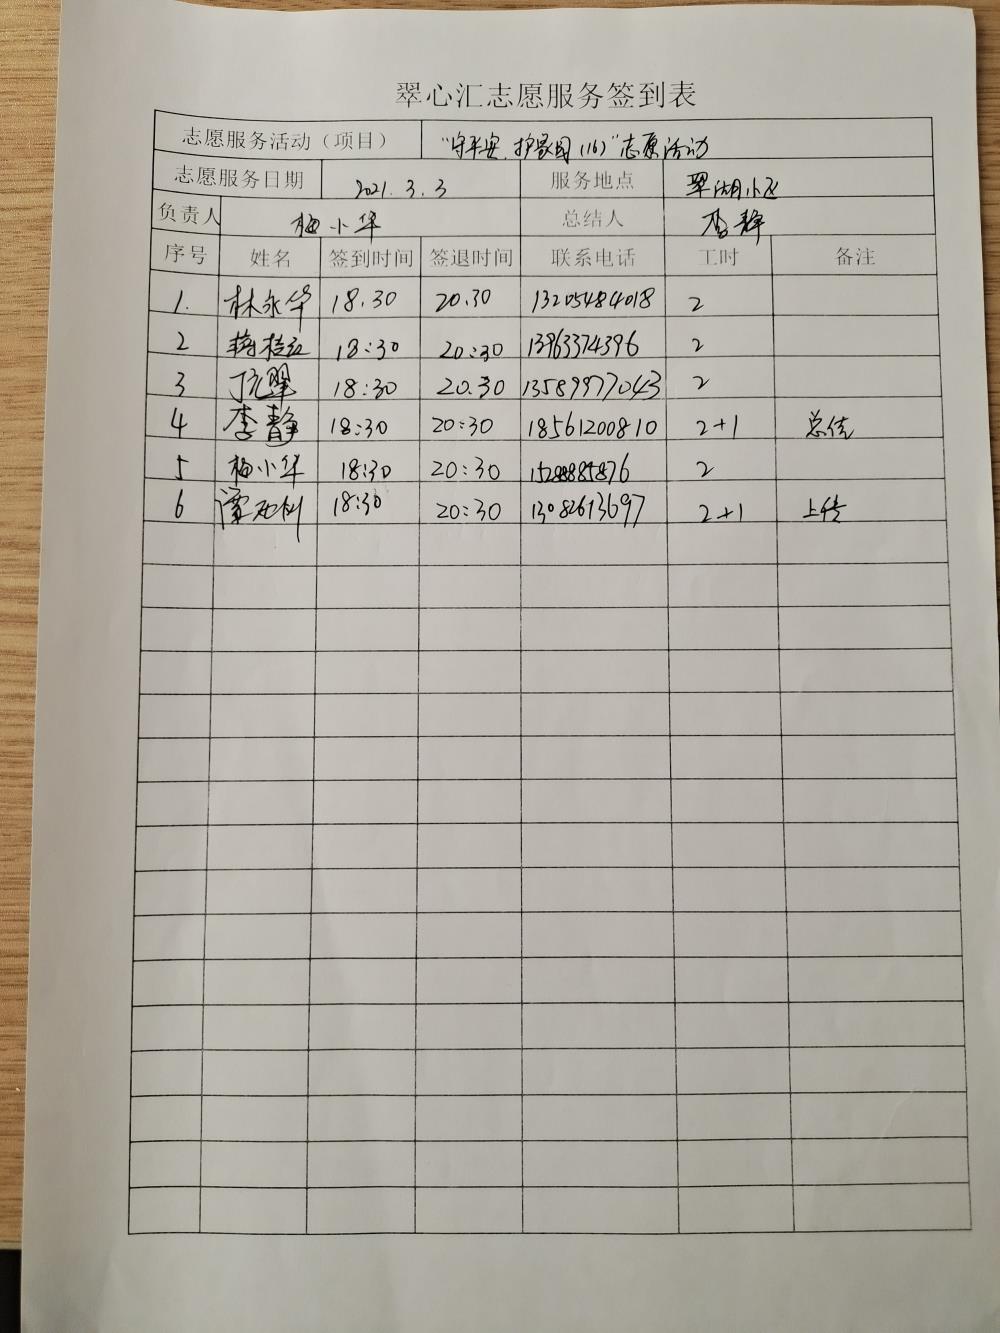 翠心汇志愿服务签到表
志愿服务活动（项目） "守平安，护家园（16）"志愿活动
志愿服务日期 2021.3.3 服务地点 翠湖小区
负责人 梅小华 总结人 李静
序号 姓名 签到时间 签退时间 联系电话 工时 备注
1. 林永华 18.30 20.30 13205484018 2
2 18:30 20:30 13963374396 2
3 18:30 20.30 13589977043 2
4 李静 18:30 20:30 18561200810 2+1 总结
5 梅小华 18:30 20:30 2
6 18:30 20:30 13082613697 2+1 上传